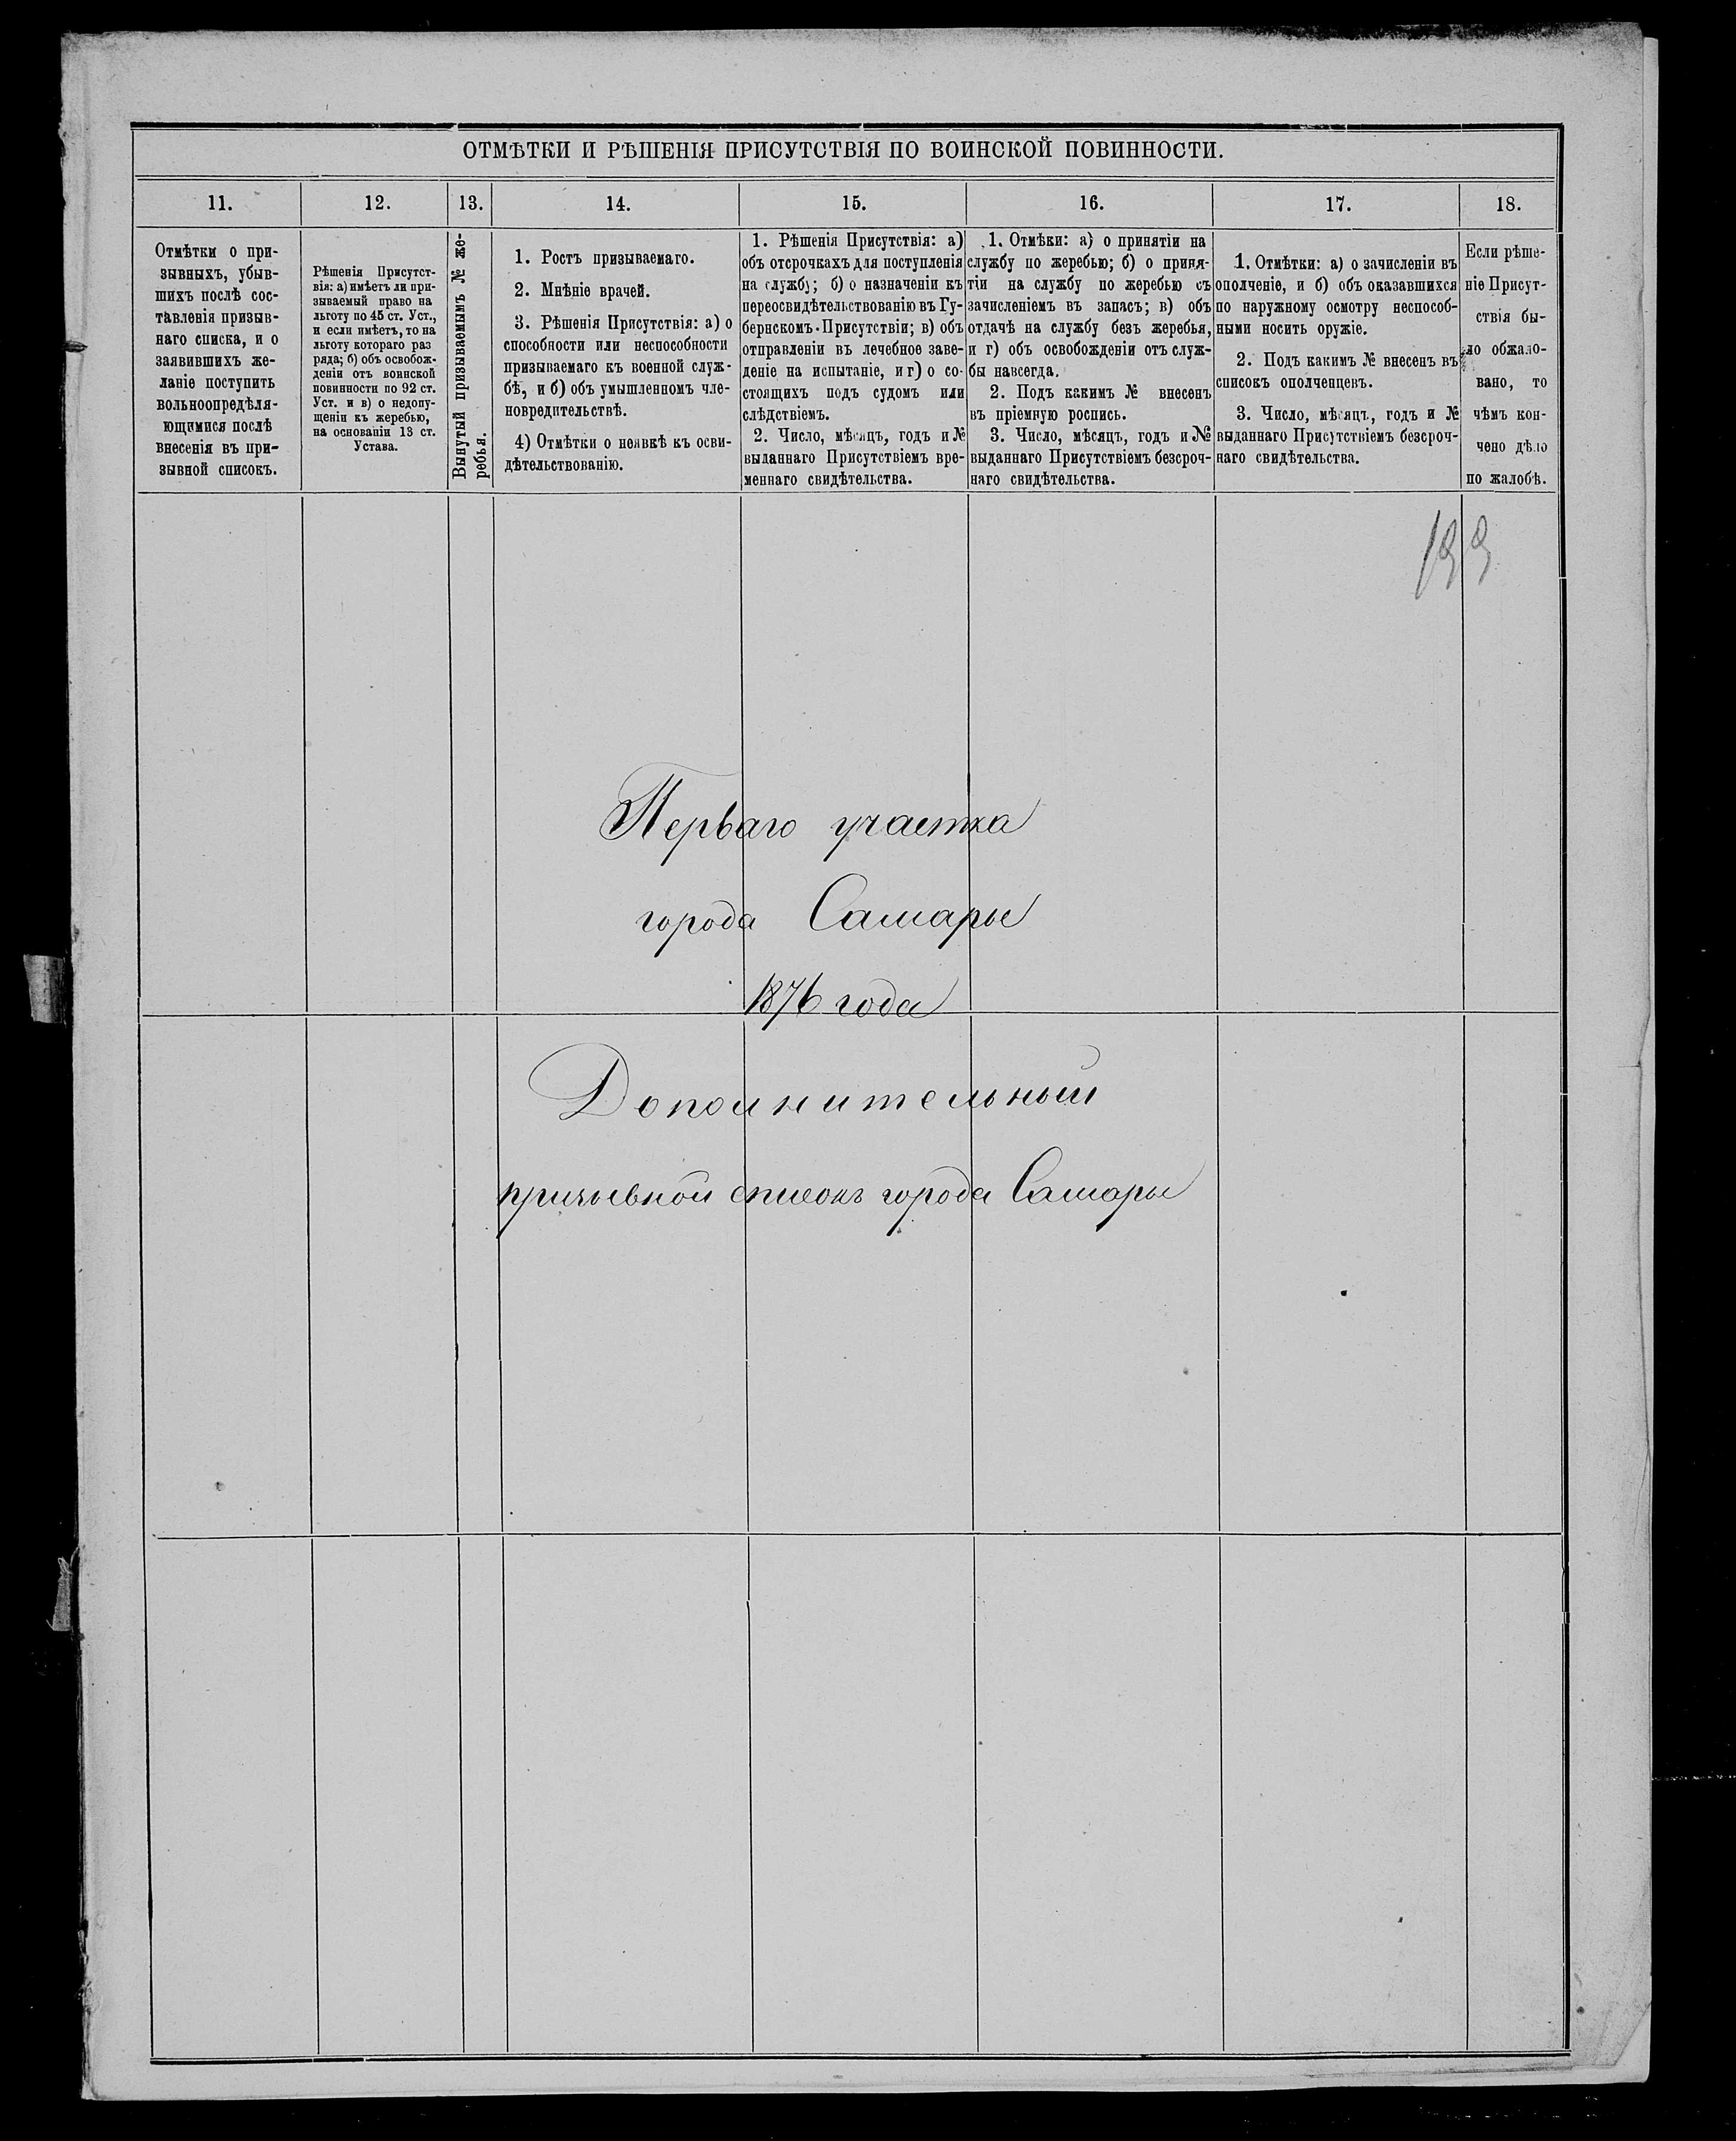 ОТМѢТКИ И РѢШЕНІЯ ПРИСУТСТВІЯ ПО ВОИНСКОЙ ПОВИННОСТИ.
11.
12.
13.
14.
15.
16.
17.
18.
Отмѣтки о при-
зывныхъ, убыв-
шихъ послѣ сос-
тавленія призыв-
наго списка, и о
заявившихъ же-
ланіе поступить
вольноопредѣля-
ющимися послѣ
внесенія въ при-
зывной списокъ.
Рѣшенія Присутст-
вія: а) имѣетъ ли при-
зываемый право на
льготу по 45 ст. Уст.,
и если имѣетъ, то на
льготу котораго раз
ряда; б) объ освобож-
деніи отъ воинской
повинности по 92 ст.
Уст. и в) о недопу-
щеніи къ жеребью,
на основаніи 13 ст.
Устава.
Вынутый призываемымъ № же-
ребья.
1. Ростъ призываемаго.
2. Мнѣніе врачей.
3. Рѣшенія Присутствія: а) о
способности или неспособности
призываемаго къ военной служ-
бѣ, и б) объ умышленномъ чле-
новредительствѣ.
4) Отмѣтки о неявкѣ къ осви-
дѣтельствованію.
1. Рѣшенія Присутствія: а)
объ отсрочкахъ для поступленія
на службу; б) о назначеніи къ
переосвидѣтельствованію въ Гу-
бернскомъ Присутствіи; в) объ
отправленіи въ лечебное заве-
деніе на испытаніе, и г) о со-
стоящихъ подъ судомъ или
слѣдствіемъ.
2. Число, мѣсяцъ, годъ и №
выданнаго Присутствіемъ вре-
меннаго свидѣтельства.
1. Отмѣки: а) о принятіи на
службу по жеребью; б) о приня-
тіи на службу по жеребью съ
зачисленіемъ въ запасъ; в) объ
отдачѣ на службу безъ жеребья,
и г) объ освобожденіи отъ служ-
бы навсегда.
2. Подъ какимъ № внесенъ
въ пріемную роспись.
3. Число, мѣсяцъ, годъ и №
выданнаго Присутствіемъ безсроч-
наго свидѣтельства.
1. Отмѣтки: а) о зачисленіи въ
ополченіе, и б) объ оказавшихся
по наружному осмотру неспособ-
ными носить оружіе.
2. Подъ какимъ № внесенъ въ
списокъ ополченцевъ.
3. Число, мѣсяцъ, годъ и №
выданнаго Присутствіемъ безсроч-
наго свидѣтельства.
Если рѣше-
ніе Присут-
ствія бы-
ло обжало-
вано, то
чѣмъ кон-
чено дѣло
по жалобѣ.
Перваго участка
города Самары
1876 года
Дополнительный
призывной списокъ города Самары